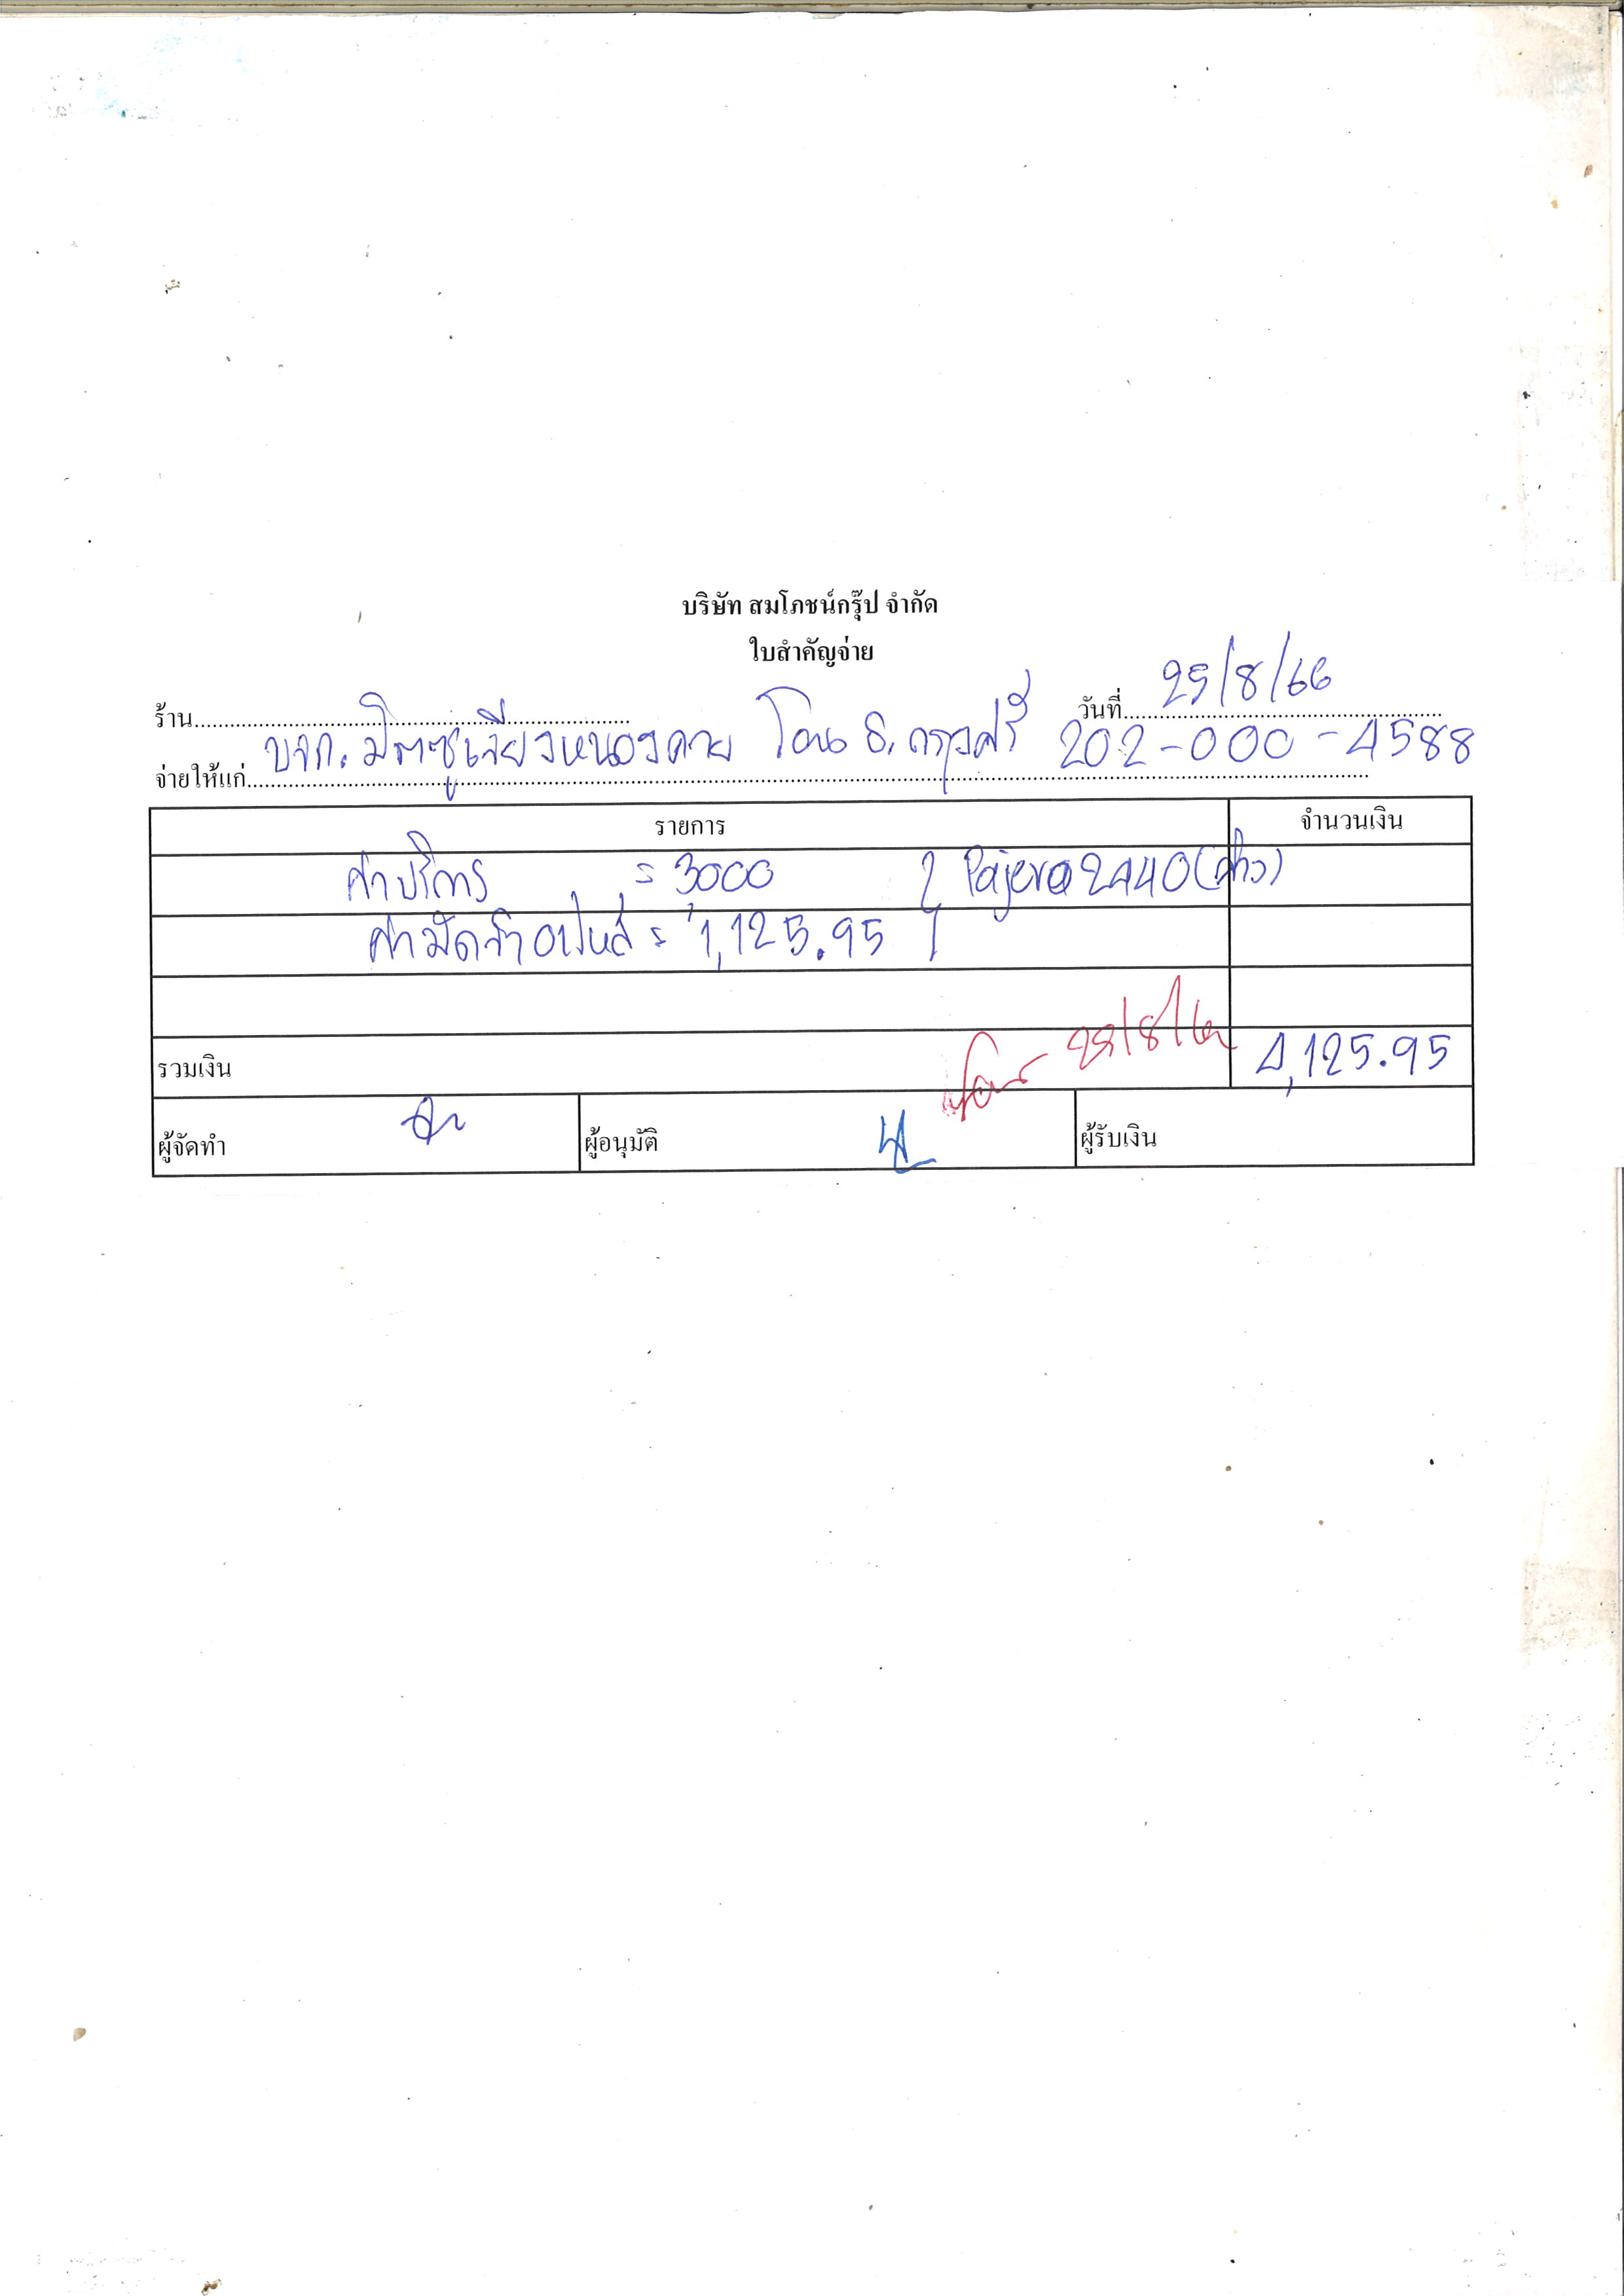 บริษัท สมโภชน์กรุ๊ป จำกัด
ใบสำคัญจ่าย
ร้าน
วันที่ 25/8/66
จ่ายให้แก่ บจก. มิตซูเจียงหนองคาย โอน ธ. กรุงศรี 202-000-4588
รายการ จำนวนเงิน
ค่าบริการ = 3000 Pajero 2440 (ขาว)
ค่ามัดจำอะไหล่ = 1,125.95
รวมเงิน 4,125.95
โอน 28/8/66
ผู้จัดทำ ผู้อนุมัติ ผู้รับเงิน